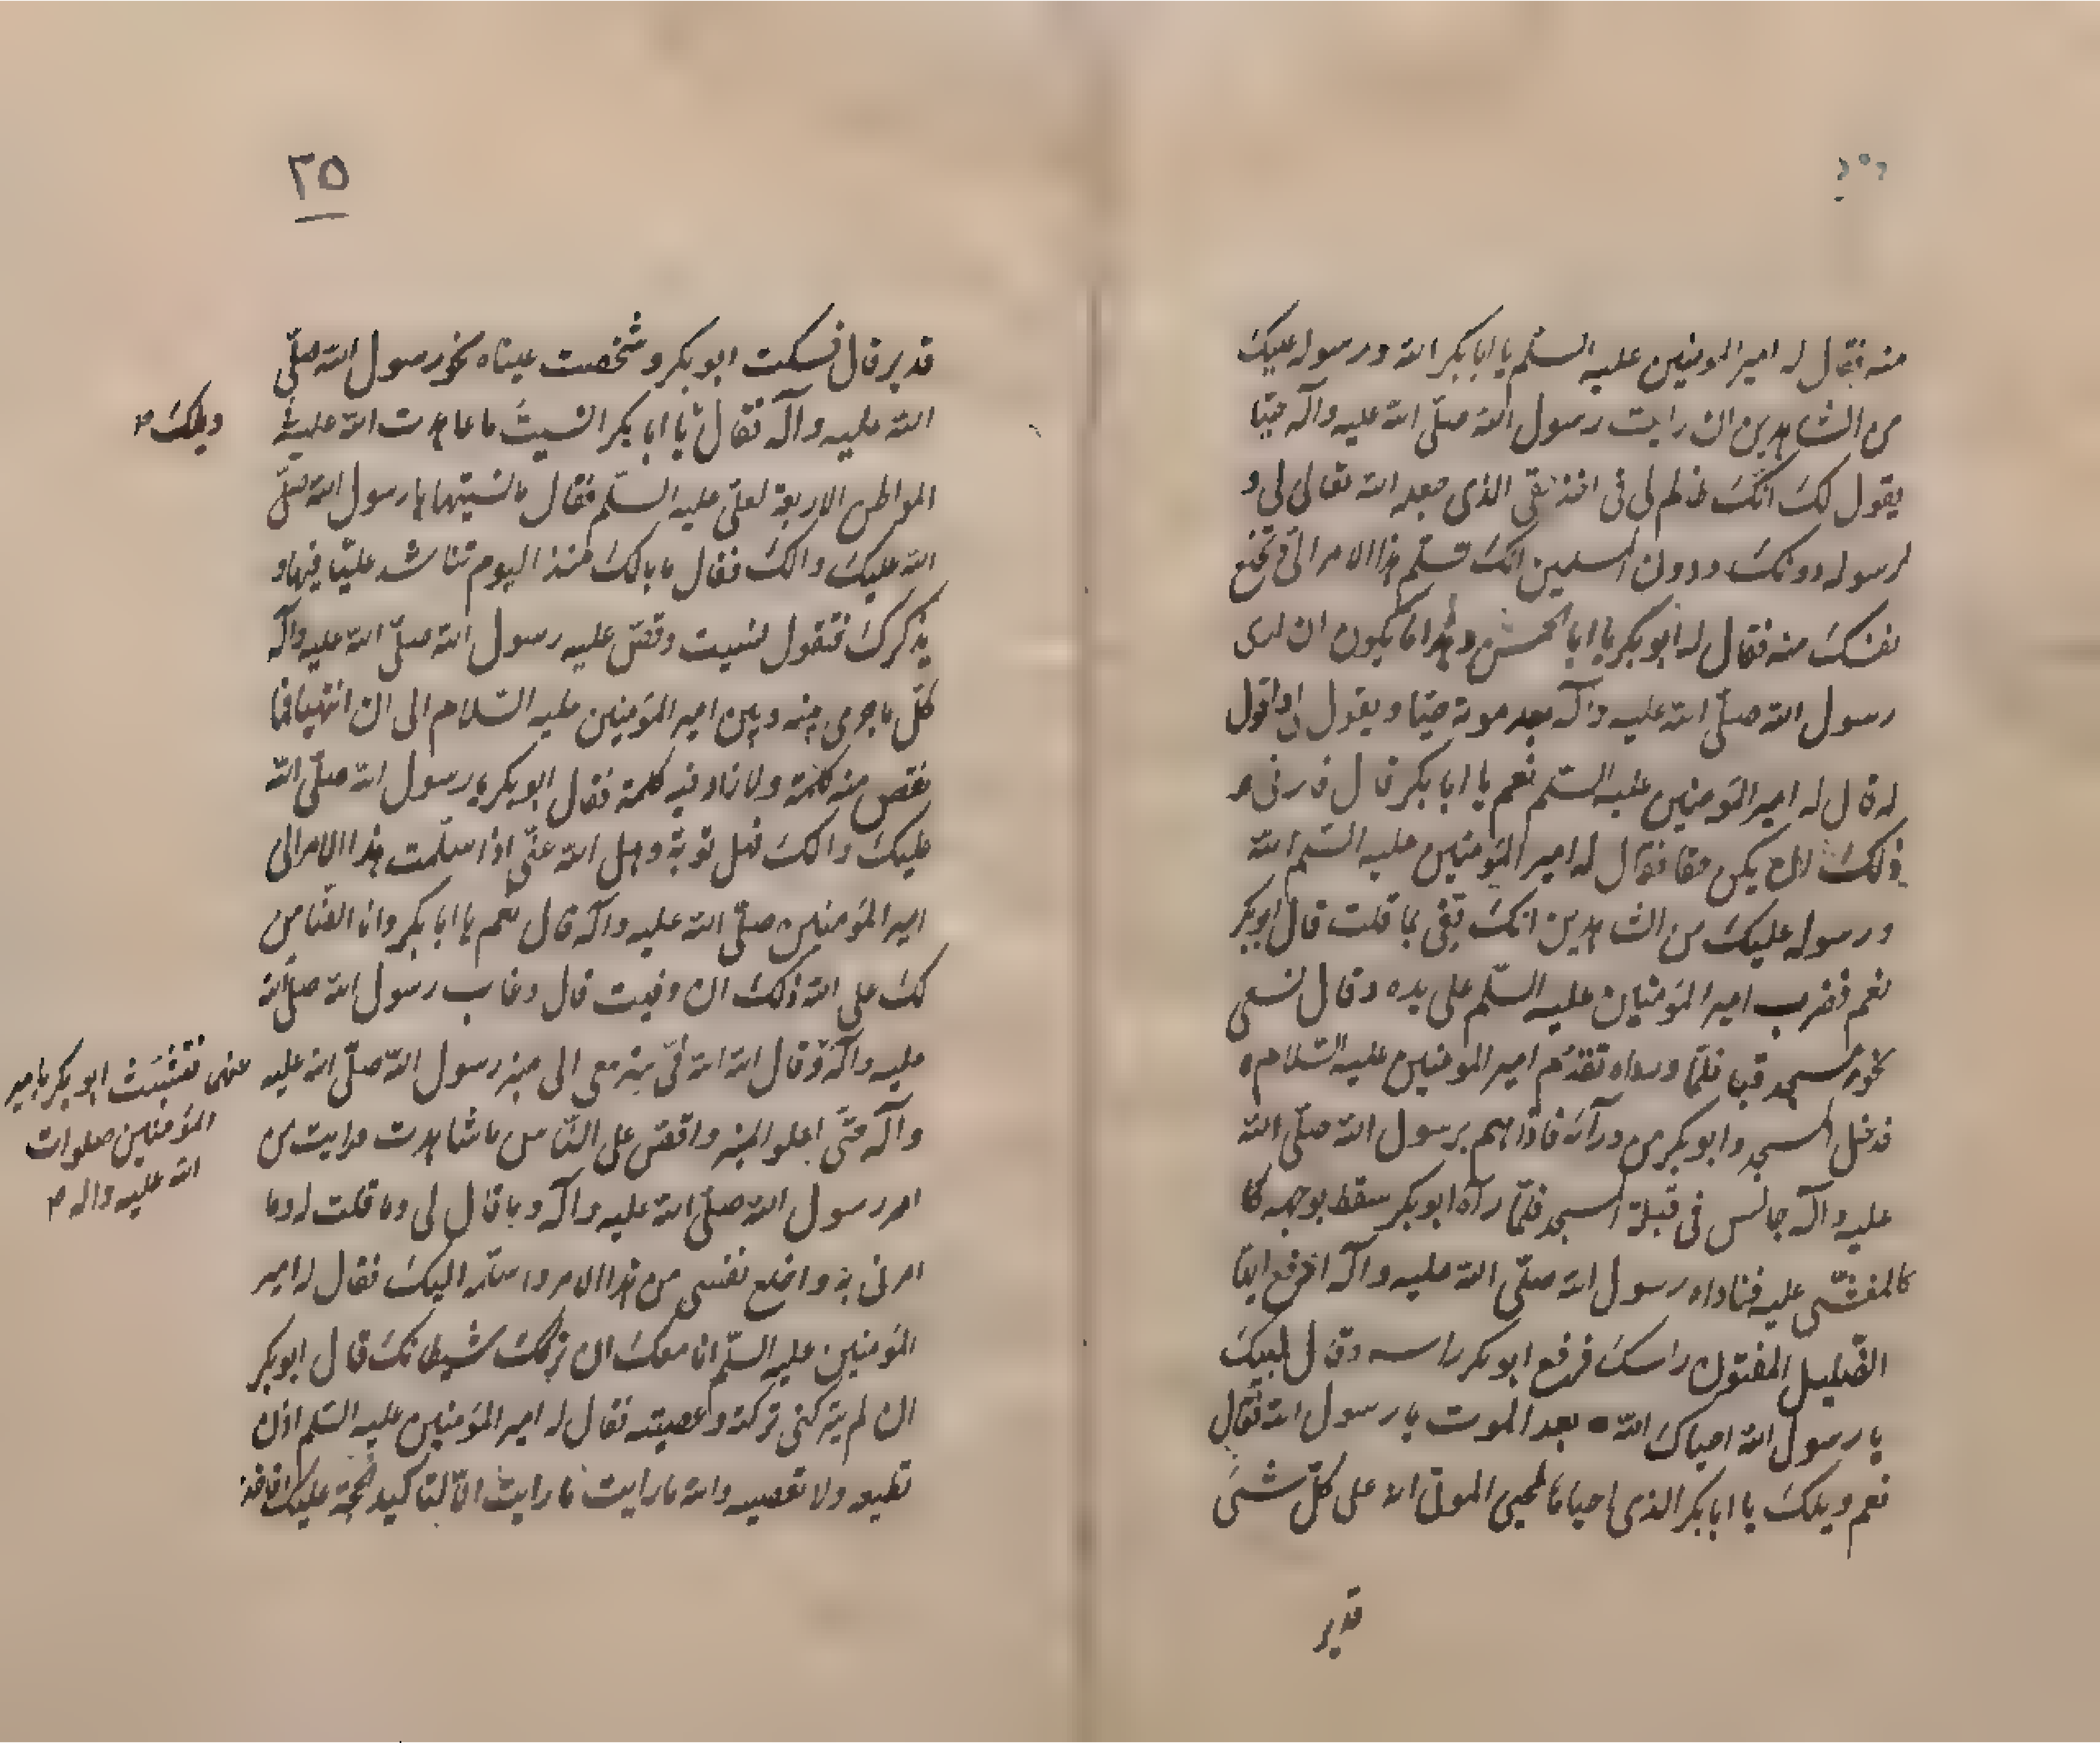 منه فقال له امير المومنين عليه السلم يا ابا بكر الله ورسوله عليك
من الشاهدين ان رايت رسول الله صلّى الله عليه وآله حيّا
يقول لك انّك ظالم لى فى اخذ حقى الذى جعله الله تعالى لى و
لرسوله دونك ودون المسلمين انك تسلّم هذا الامر الىّ وتخلع
نفسك منه فقال له ابو بكر يا ابا الحسن وهذا مما يكون ان ارى
رسول الله صلّى الله عليه وآله بعد موته حيّا ويقول لى واقول
له قال له امير المؤمنين عليه السلم نعم يا ابا بكر قال فارنى
ذلك ان يكن حقا فقال له امير المؤمنين عليه السلم الله
ورسوله عليك من الشاهدين انك تفى بما قلت قال ابو بكر
نعم فضرب امير المؤمنين عليه السلّم على يده وقال تسعى
نحو مسجد قبا فلمّا ورداه تقدّم امير المومنين عليه السلام
فدخل المسجد وابو بكر من ورآئه فاذا هم برسول الله صلّى الله
عليه وآله جالس فى قبلة المسجد فلمّا رآه ابو بكر سقط بوجهه كا
كالمغشّى عليه فناداه رسول الله صلّى الله عليه وآله ارفع ايّها
الضّليل المفتون راسك فرفع ابو بكر راسه وقال لبيك
يا رسول الله احياك الله بعد الموت يا رسول الله فقال
نعم ويلك يا ابا بكر الذى احيانا لمحيى الموتى انه على كلّ شئ
قدير
٢٥
قدير قال فسكت ابو بكر وشخصت عيناه نحو رسول الله صلّى
الله عليه وآله فقال يا ابا بكر انسيت ما عاهدت الله عليه
ويلك
المواطن الاربعة لعلى عليه السلّم فقال ما نسيتها يا رسول الله صلّى
الله عليك والك فقال ما بالك منذ اليوم تناشد عليّا فيها و
يذكرك فتقول نسيت وقصّ عليه رسول الله صلّى الله عليه وآله
كلّ ما جرى بينه وبين امير المؤمنين عليه السّلام الى ان انتهيا فما
نقص منه كلمة ولا زاد فيه كلمة فقال ابو بكر يا رسول الله صلّى الله
عليك والك فهل توبة وهل الله عنّى اذا سلّمت هذا الامر الى
امير المؤمنين صلّى الله عليه وآله قال نعم يا ابا بكر وانا الضّامن
لك على الله ذلك ان وفيت قال وغاب رسول الله صلّى الله
عليه وآله وقال الله الله فىّ سر معى الى منبر رسول الله صلّى الله عليه
عنهم فتشبّث ابو بكر بامير
المؤمنين صلوات
الله عليه واله
وآله حتّى اعلو المنبر واقصّ على النّاس ما شاهدت ورايت من
امر رسول الله صلّى الله عليه وآله وما قال لى وما قلت له وما
امرنى به واخلع نفسى من هذا الامر واسلّمه اليك فقال له امير
المؤمنين عليه السلّم انا معك ان تركك شيطانك قال ابو بكر
ان لم يتركنى تركته وعصيته فقال له امير المؤمنين عليه السّلم اذن
تطيعه ولا تعصيه وانه ما رايت ما رايت الّا لتاكيد الحجّة عليك فاخذ